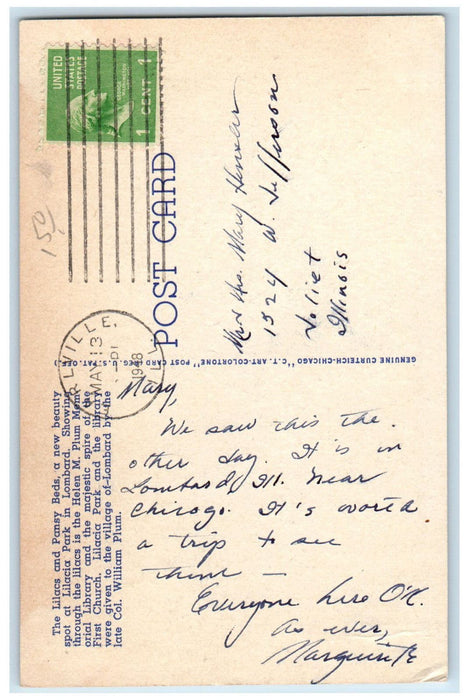 The Lilacs and Pansy Beds, a new beauty
spot at Lilacia Park in Lombard. Showing
through the lilacs is the Helen M. Plum Mem-
orial Library and the majestic spire of the
First Church. Lilacia Park and the library
were given to the village of Lombard by the
late Col. William Plum.
POST CARD
GENUINE CURTEICH-CHICAGO "C.T. ART-COLORTONE" POST CARD (REG. U.S. PAT. OFF.)
UNITED
STATES
POSTAGE
1 CENT 1
LVILLE,
MAY 13
1948
15¢
Mr & Mrs. Mary
1524 W. Jefferson
Joliet
Illinois
Mary,
We saw this the
other day. It is in
Lombard, Ill. near
Chicago. It's worth
a trip to see
them —
Everyone here O'K.
As ever,
Marguerite